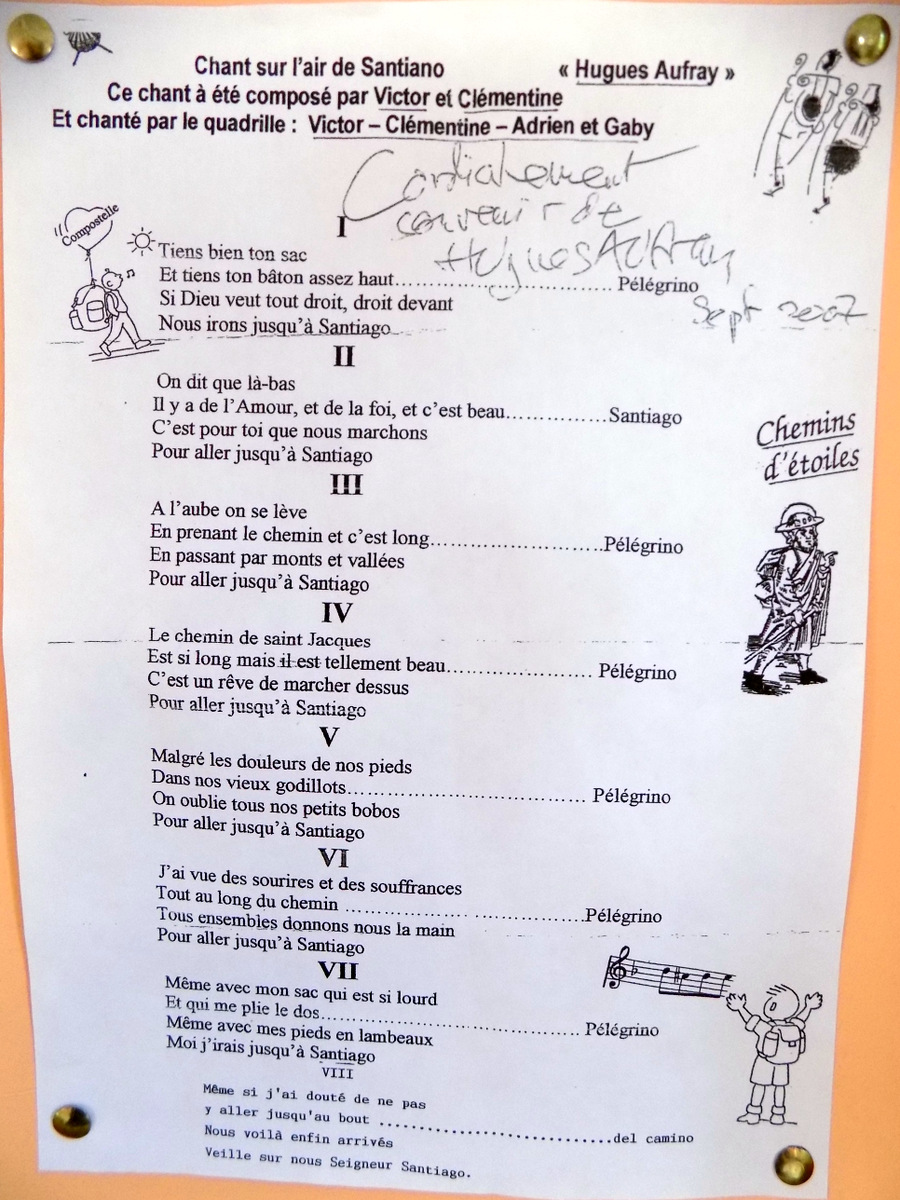 Chant sur l'air de Santiano « Hugues Aufray »
Ce chant à été composé par Victor et Clémentine
Et chanté par le quadrille : Victor – Clémentine – Adrien et Gaby
Cordialement
souvenir de
Hugues Aufray
Sept 2007
Compostelle
I
Tiens bien ton sac
Et tiens ton bâton assez haut........................................ Pélégrino
Si Dieu veut tout droit, droit devant
Nous irons jusqu'à Santiago
II
On dit que là-bas
Il y a de l'Amour, et de la foi, et c'est beau...................Santiago
C'est pour toi que nous marchons
Pour aller jusqu'à Santiago
Chemins
d'étoiles
III
A l'aube on se lève
En prenant le chemin et c'est long................................Pélégrino
En passant par monts et vallées
Pour aller jusqu'à Santiago
IV
Le chemin de saint Jacques
Est si long mais il est tellement beau........................... Pélégrino
C'est un rêve de marcher dessus
Pour aller jusqu'à Santiago
V
Malgré les douleurs de nos pieds
Dans nos vieux godillots............................................. Pélégrino
On oublie tous nos petits bobos
Pour aller jusqu'à Santiago
VI
J'ai vue des sourires et des souffrances
Tout au long du chemin .............................................Pélégrino
Tous ensembles donnons nous la main
Pour aller jusqu'à Santiago
VII
Même avec mon sac qui est si lourd
Et qui me plie le dos................................................ Pélégrino
Même avec mes pieds en lambeaux
Moi j'irais jusqu'à Santiago
VIII
Même si j'ai douté de ne pas
y aller jusqu'au bout ..............................del camino
Nous voilà enfin arrivés
Veille sur nous Seigneur Santiago.